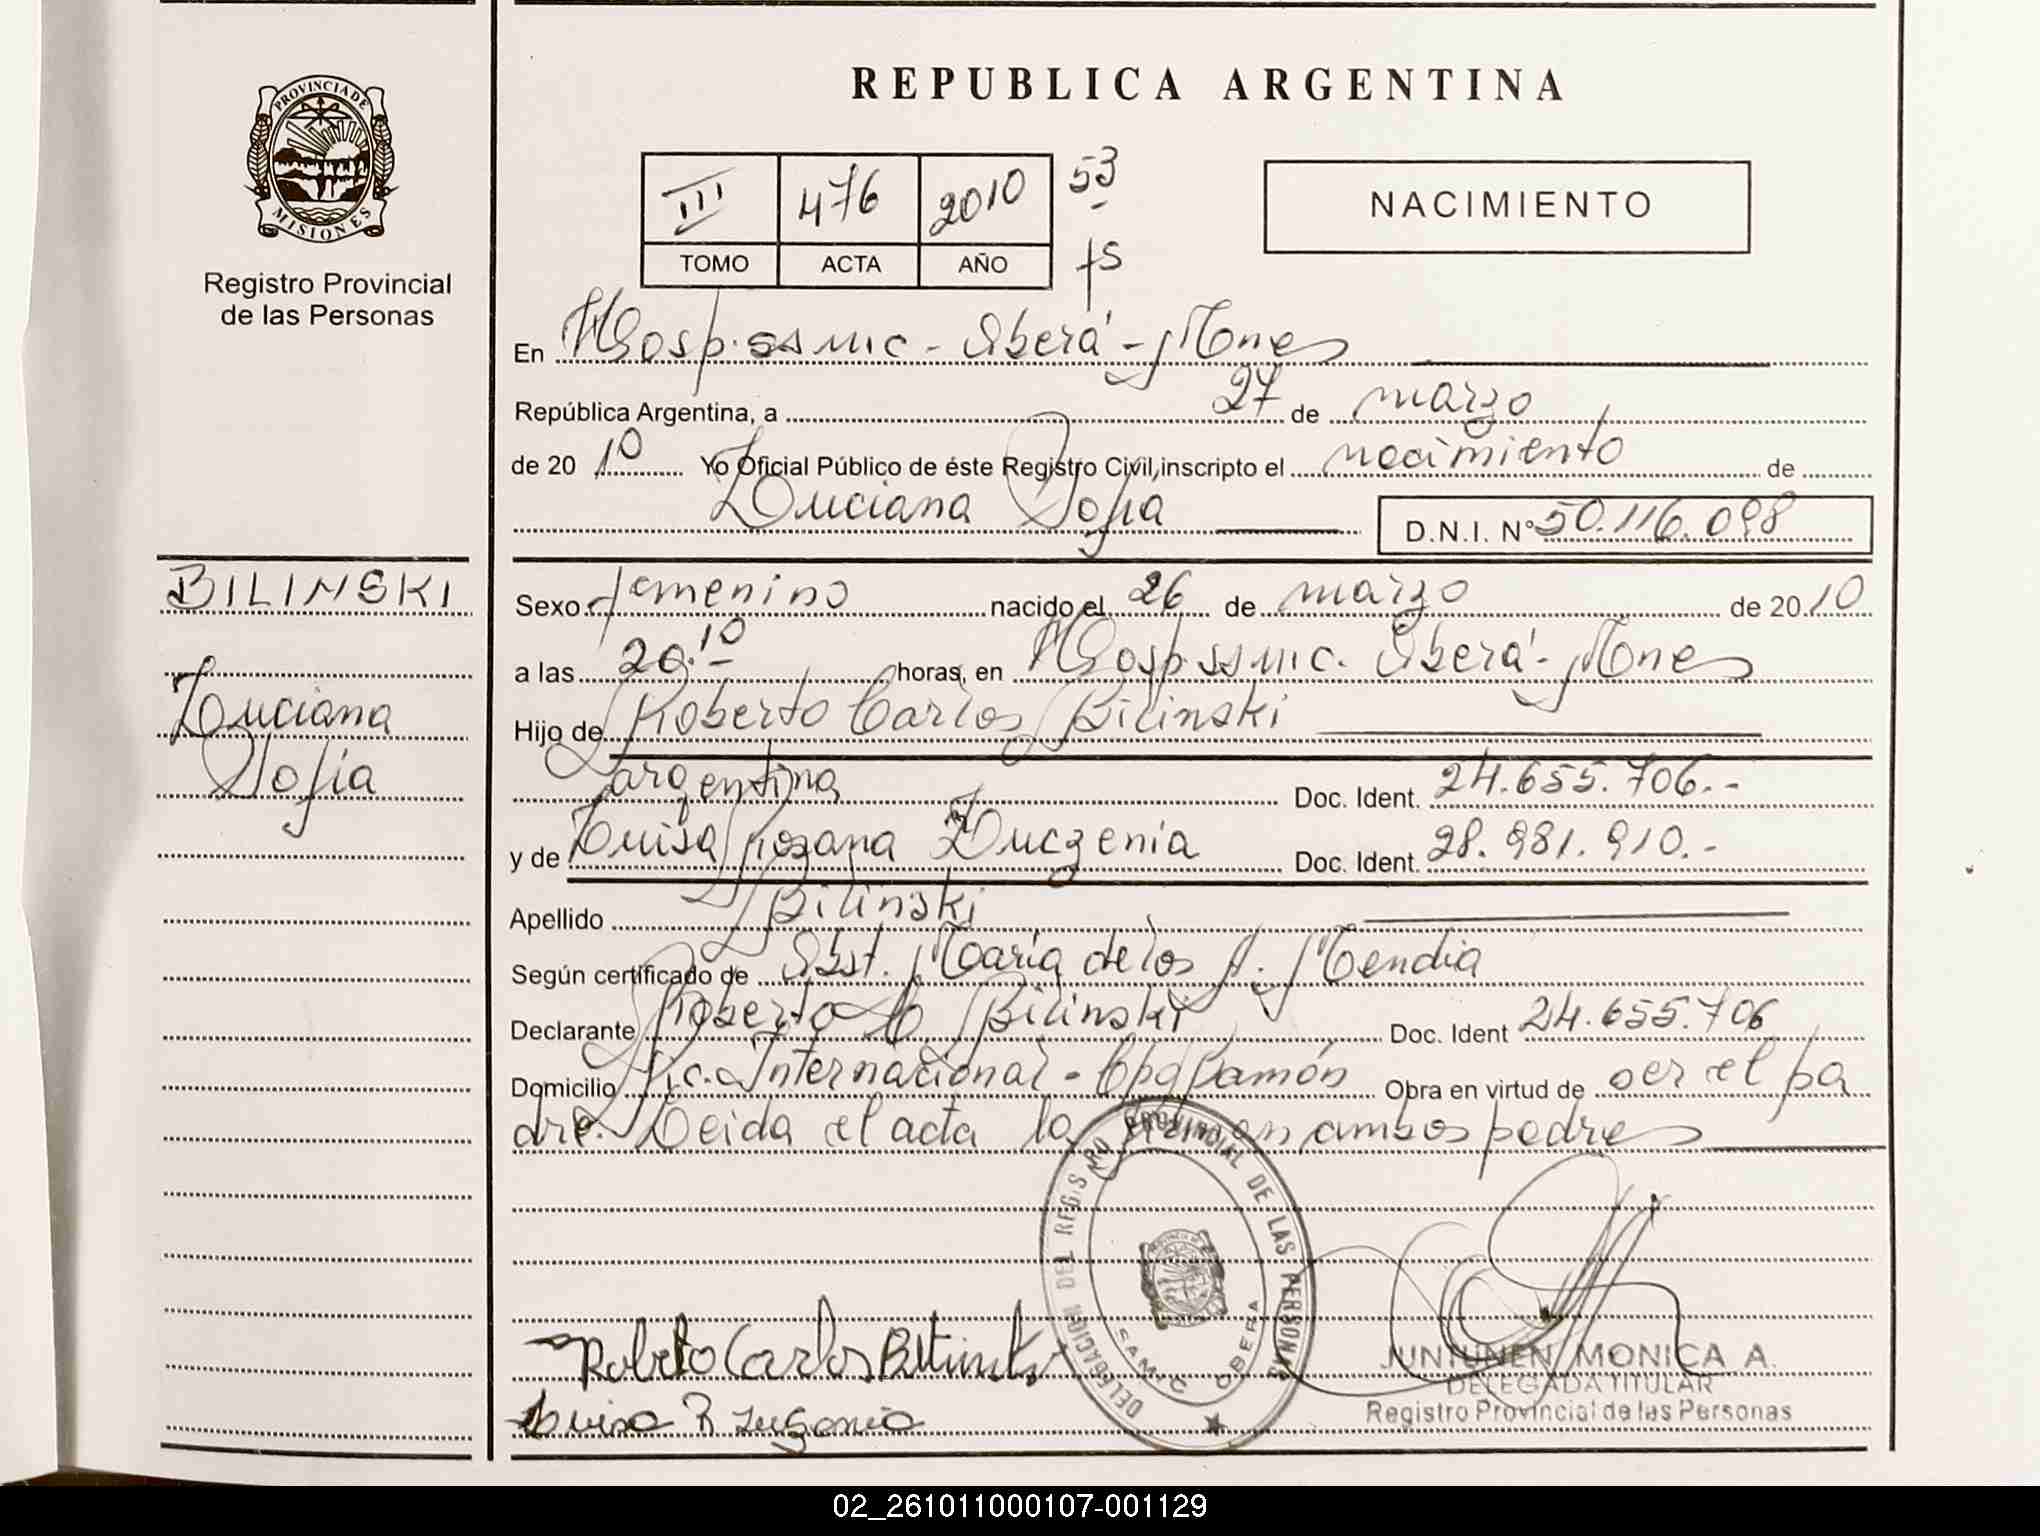 REPUBLICA ARGENTINA
PROVINCIA DE
MISIONES
Registro Provincial
de las Personas
III 476 2010 53
TOMO ACTA AÑO fs
NACIMIENTO
En Hosp. ssmic - Oberá - Mnes
República Argentina, a 27 de marzo
de 2010 Yo Oficial Público de éste Registro Civil, inscripto el nacimiento de
Luciana Sofía D.N.I. N° 50.116.098
BILINSKI
Luciana
Sofía
Sexo femenino nacido el 26 de marzo de 2010
a las 20.10 horas, en Hosp. ssmic. Oberá - Mnes
Hijo de Roberto Carlos Bilinski
argentina Doc. Ident. 24.655.706.-
y de Luisa Rosana Luczenia Doc. Ident. 28.981.910.-
Apellido Bilinski
Según certificado de Obst. María de los A. Mendia
Declarante Roberto C. Bilinski Doc. Ident 24.655.706
Domicilio Pic. Internacional - Cpo Ramón Obra en virtud de ser el pa
dre. Leida el acta la firman ambos padres
DELEGACION DEL REGISTRO PROVINCIAL DE LAS PERSONAS
SAMIC OBERA
Roberto Carlos Bilinski
Luisa R
JUNTUNEN MONICA A.
DELEGADA TITULAR
Registro Provincial de las Personas
02_261011000107-001129